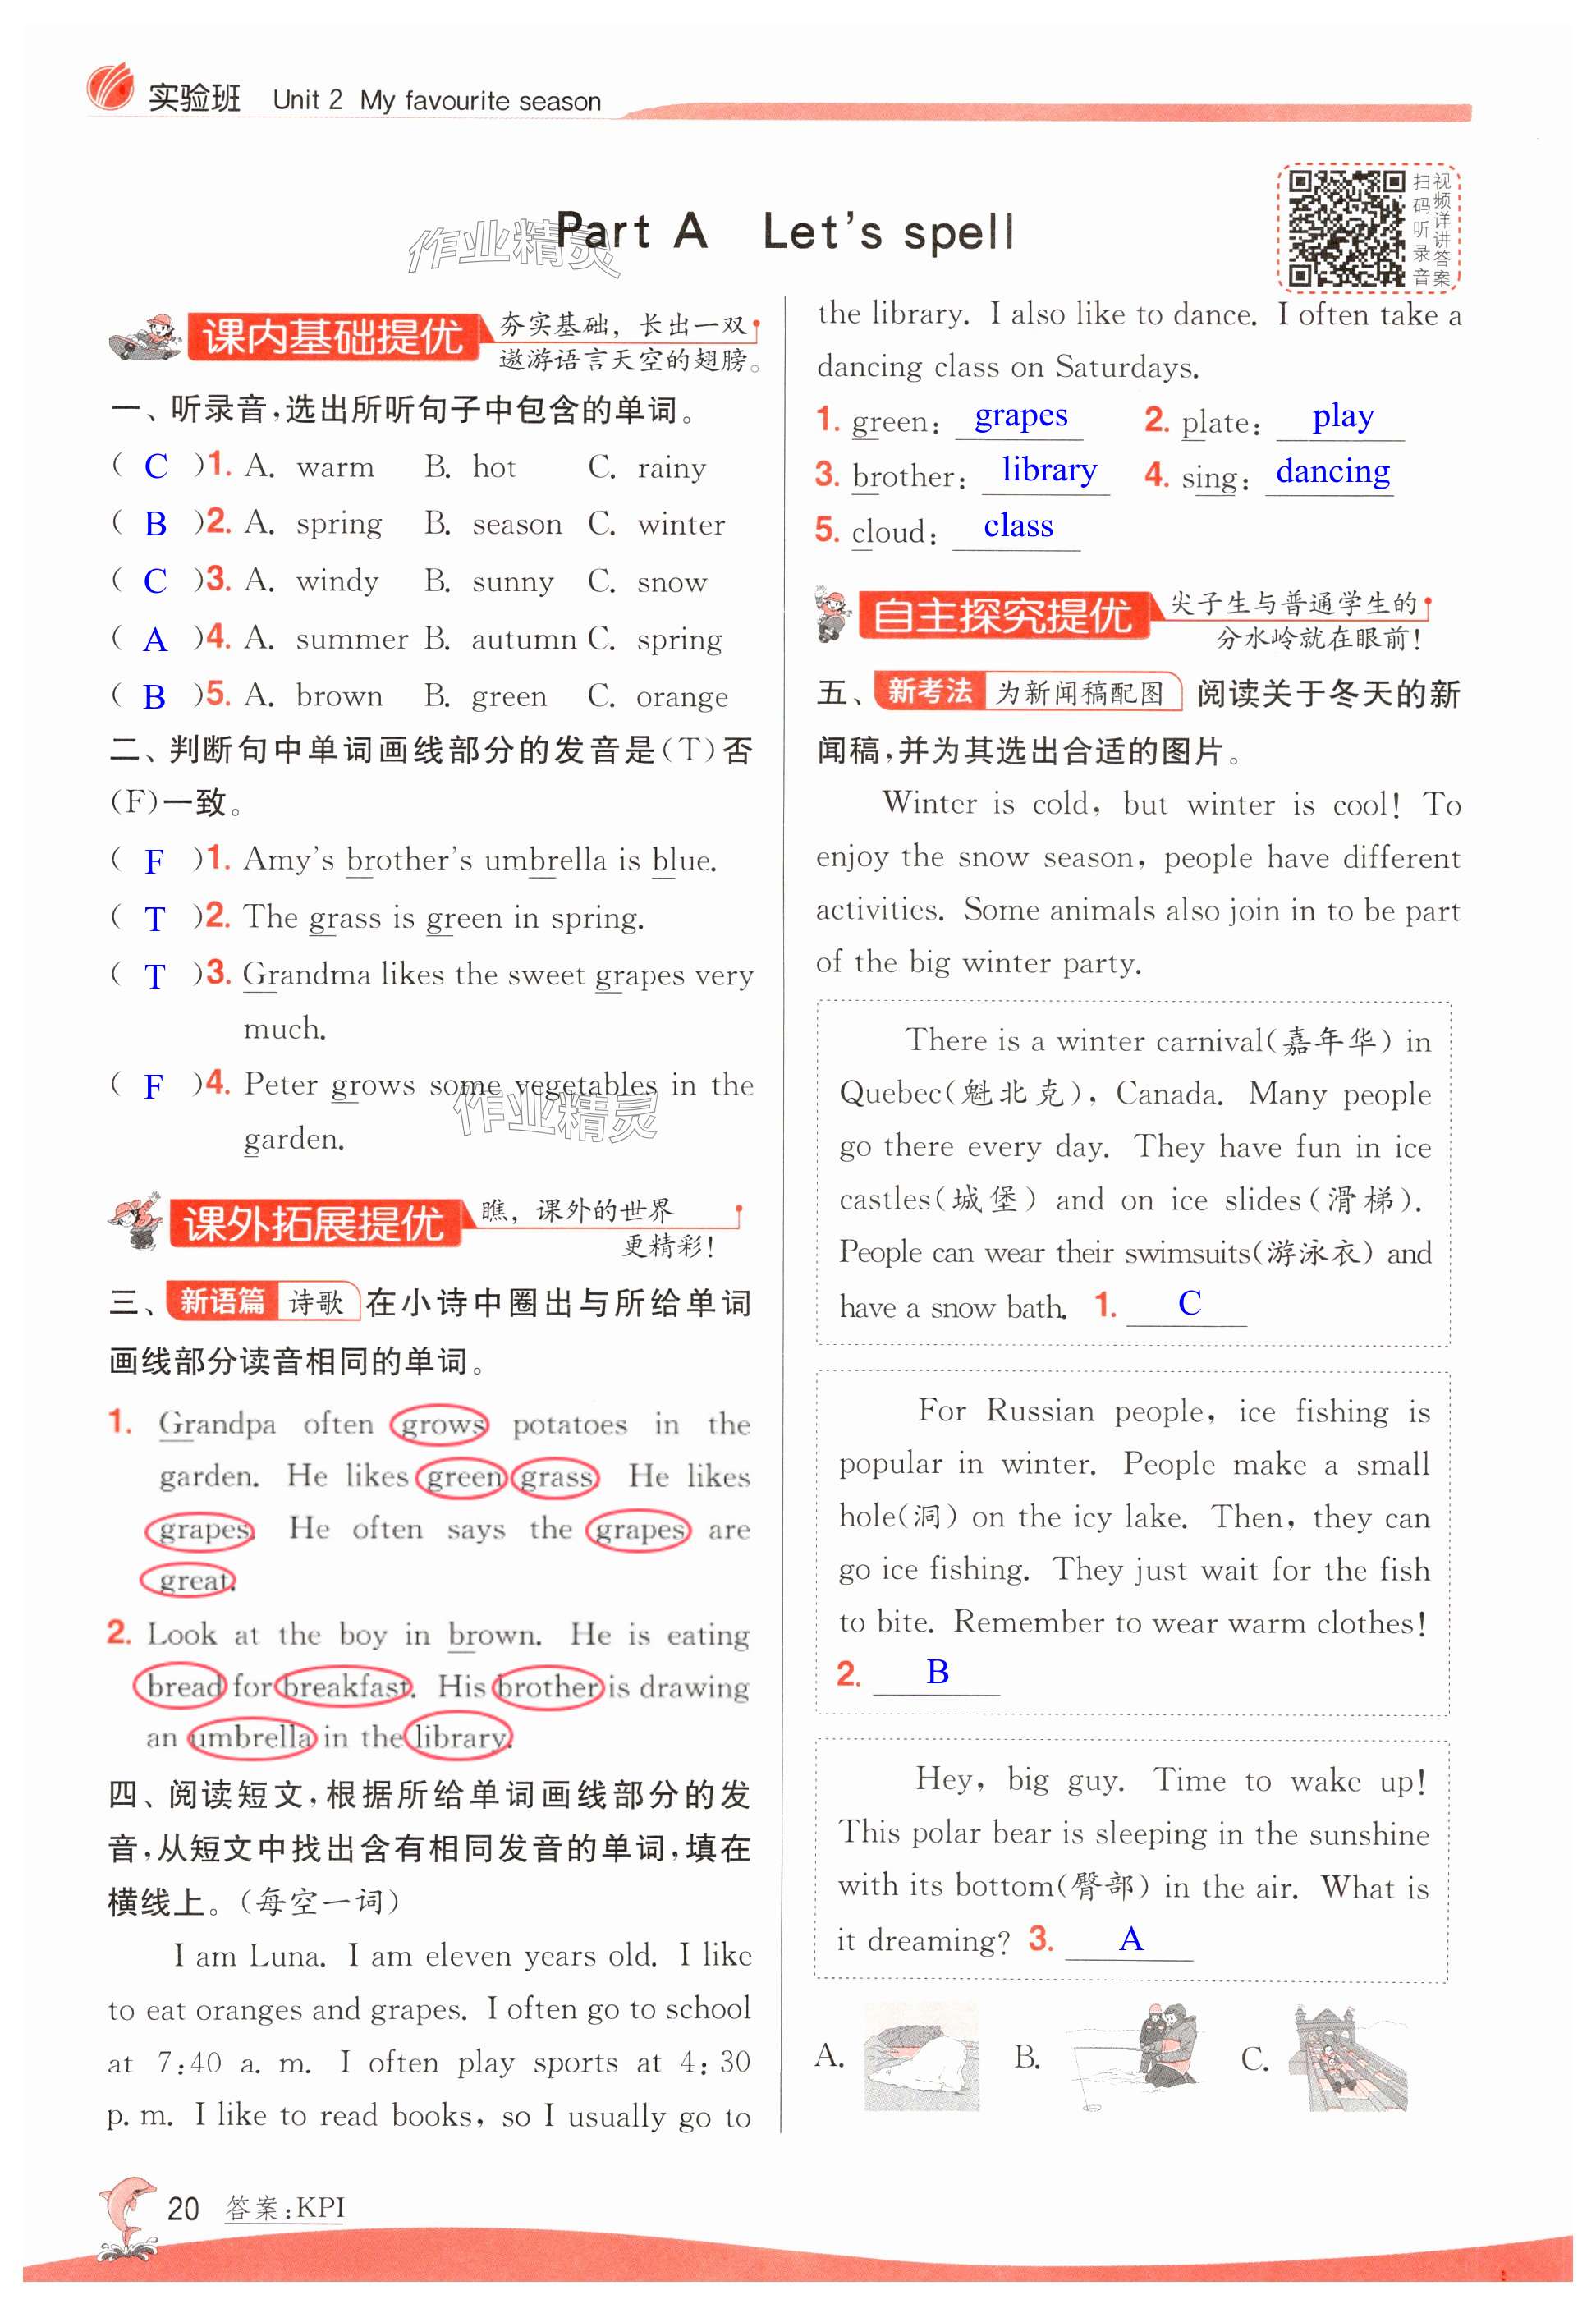 实验班 Unit 2 My favourite season
Part A Let's spell
作业精灵
扫码听录音
视频详讲答案
课内基础提优 夯实基础，长出一双
遨游语言天空的翅膀。
一、听录音,选出所听句子中包含的单词。
( C )1. A. warm B. hot C. rainy
( B )2. A. spring B. season C. winter
( C )3. A. windy B. sunny C. snow
( A )4. A. summer B. autumn C. spring
( B )5. A. brown B. green C. orange
二、判断句中单词画线部分的发音是(T)否
(F)一致。
( F )1. Amy's brother's umbrella is blue.
( T )2. The grass is green in spring.
( T )3. Grandma likes the sweet grapes very
much.
( F )4. Peter grows some vegetables in the
garden.
作业精灵
课外拓展提优 瞧，课外的世界
更精彩！
三、新语篇 诗歌 在小诗中圈出与所给单词
画线部分读音相同的单词。
1. Grandpa often grows potatoes in the
garden. He likes green grass. He likes
grapes. He often says the grapes are
great.
2. Look at the boy in brown. He is eating
bread for breakfast. His brother is drawing
an umbrella in the library.
四、阅读短文,根据所给单词画线部分的发
音,从短文中找出含有相同发音的单词,填在
横线上。(每空一词)
I am Luna. I am eleven years old. I like
to eat oranges and grapes. I often go to school
at 7:40 a. m. I often play sports at 4:30
p. m. I like to read books, so I usually go to
the library. I also like to dance. I often take a
dancing class on Saturdays.
1. green: grapes 2. plate: play
3. brother: library 4. sing: dancing
5. cloud: class
自主探究提优 尖子生与普通学生的
分水岭就在眼前！
五、新考法 为新闻稿配图 阅读关于冬天的新
闻稿,并为其选出合适的图片。
Winter is cold, but winter is cool! To
enjoy the snow season, people have different
activities. Some animals also join in to be part
of the big winter party.
There is a winter carnival(嘉年华) in
Quebec(魁北克), Canada. Many people
go there every day. They have fun in ice
castles(城堡) and on ice slides(滑梯).
People can wear their swimsuits(游泳衣) and
have a snow bath. 1. C
For Russian people, ice fishing is
popular in winter. People make a small
hole(洞) on the icy lake. Then, they can
go ice fishing. They just wait for the fish
to bite. Remember to wear warm clothes!
2. B
Hey, big guy. Time to wake up!
This polar bear is sleeping in the sunshine
with its bottom(臀部) in the air. What is
it dreaming? 3. A
A. B. C.
20 答案:KPI